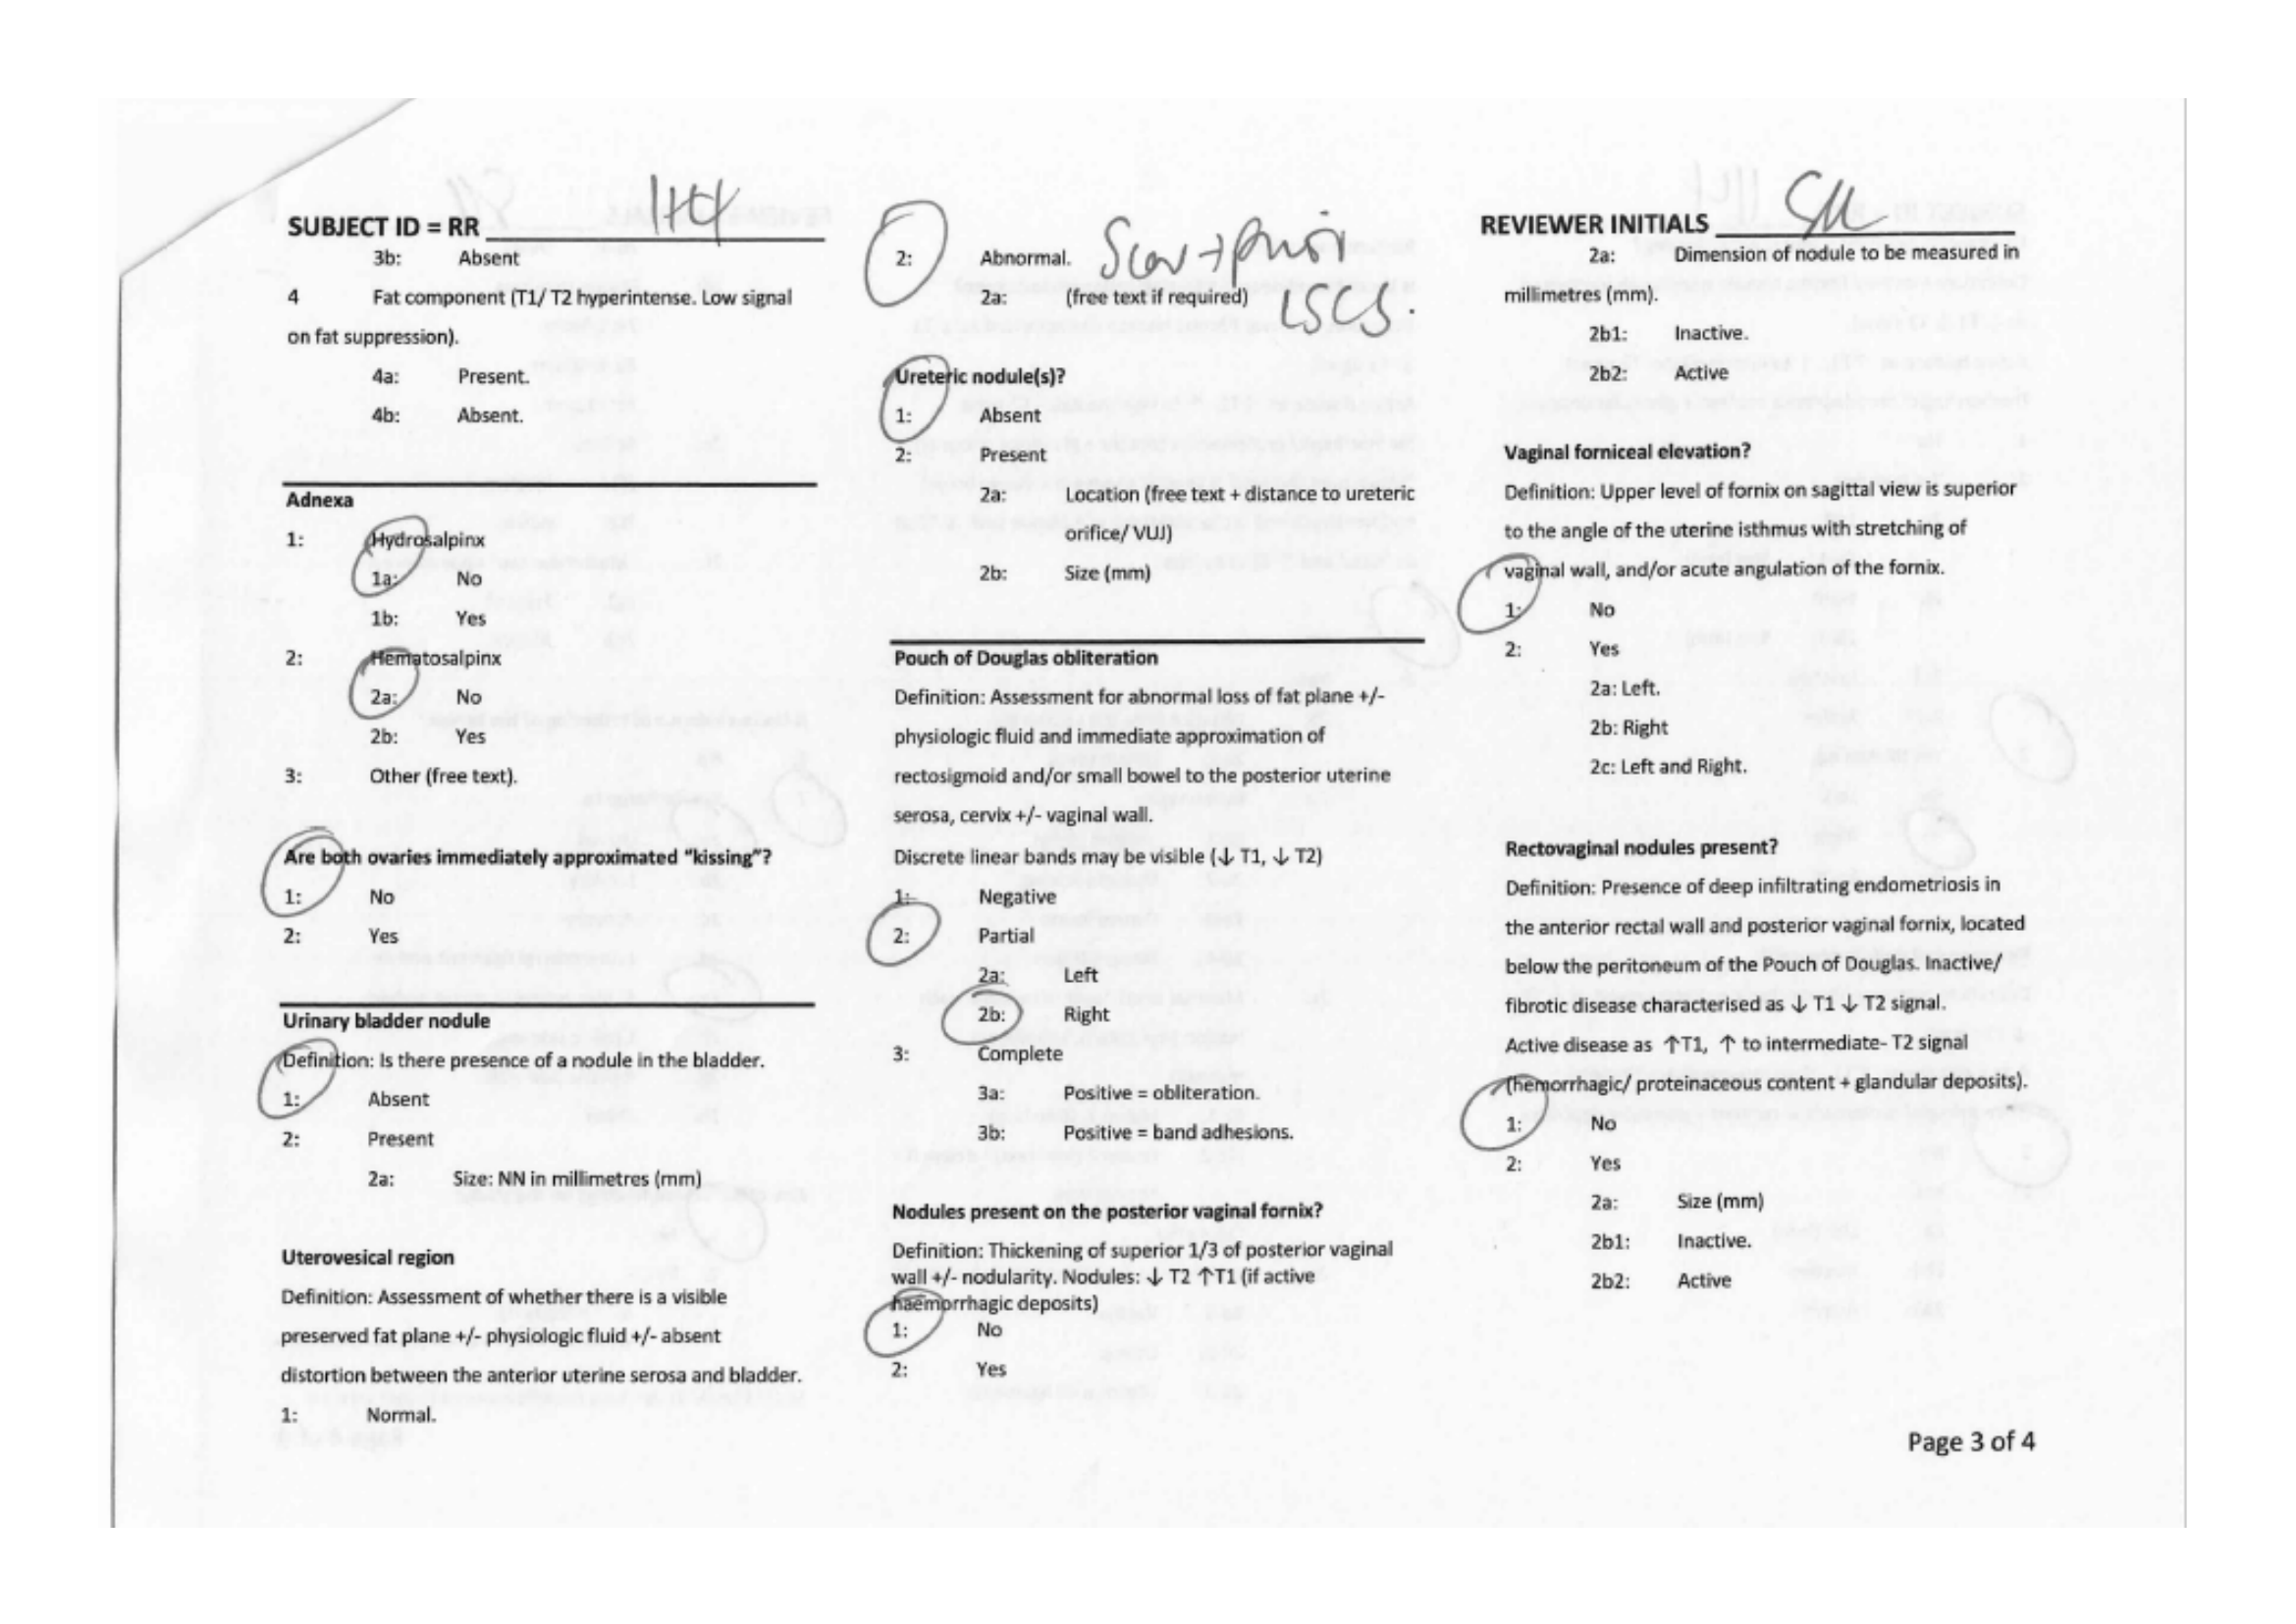 SUBJECT ID = RR
3b: Absent
4 Fat component (T1/ T2 hyperintense. Low signal
on fat suppression).
4a: Present.
4b: Absent.
Adnexa
1: Hydrosalpinx
1a: No
1b: Yes
2: Hematosalpinx
2a: No
2b: Yes
3: Other (free text).
Are both ovaries immediately approximated “kissing”?
1: No
2: Yes
Urinary bladder nodule
Definition: Is there presence of a nodule in the bladder.
1: Absent
2: Present
2a: Size: NN in millimetres (mm)
Uterovesical region
Definition: Assessment of whether there is a visible
preserved fat plane +/- physiologic fluid +/- absent
distortion between the anterior uterine serosa and bladder.
1: Normal.
2: Abnormal. Scar → prior
2a: (free text if required) LSCS.
Ureteric nodule(s)?
1: Absent
2: Present
2a: Location (free text + distance to ureteric
orifice/ VUJ)
2b: Size (mm)
Pouch of Douglas obliteration
Definition: Assessment for abnormal loss of fat plane +/-
physiologic fluid and immediate approximation of
rectosigmoid and/or small bowel to the posterior uterine
serosa, cervix +/- vaginal wall.
Discrete linear bands may be visible (↓ T1, ↓ T2)
1: Negative
2: Partial
2a: Left
2b: Right
3: Complete
3a: Positive = obliteration.
3b: Positive = band adhesions.
Nodules present on the posterior vaginal fornix?
Definition: Thickening of superior 1/3 of posterior vaginal
wall +/- nodularity. Nodules: ↓ T2 ↑T1 (if active
haemorrhagic deposits)
1: No
2: Yes
REVIEWER INITIALS SM
2a: Dimension of nodule to be measured in
millimetres (mm).
2b1: Inactive.
2b2: Active
Vaginal forniceal elevation?
Definition: Upper level of fornix on sagittal view is superior
to the angle of the uterine isthmus with stretching of
vaginal wall, and/or acute angulation of the fornix.
1: No
2: Yes
2a: Left.
2b: Right
2c: Left and Right.
Rectovaginal nodules present?
Definition: Presence of deep infiltrating endometriosis in
the anterior rectal wall and posterior vaginal fornix, located
below the peritoneum of the Pouch of Douglas. Inactive/
fibrotic disease characterised as ↓ T1 ↓ T2 signal.
Active disease as ↑T1, ↑ to intermediate- T2 signal
(hemorrhagic/ proteinaceous content + glandular deposits).
1: No
2: Yes
2a: Size (mm)
2b1: Inactive.
2b2: Active
Page 3 of 4